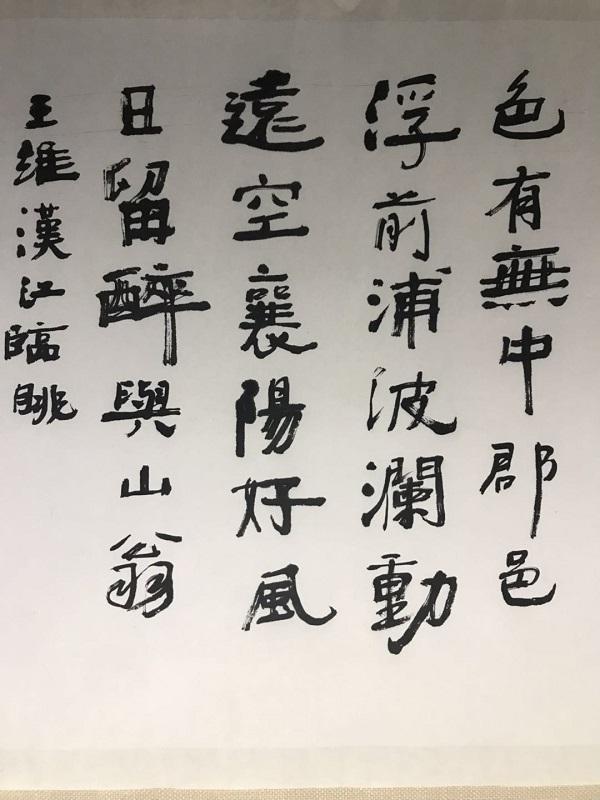 色有無中郡邑
浮前浦波瀾動
遠空襄陽好風
日留醉與山翁
王維漢江臨眺